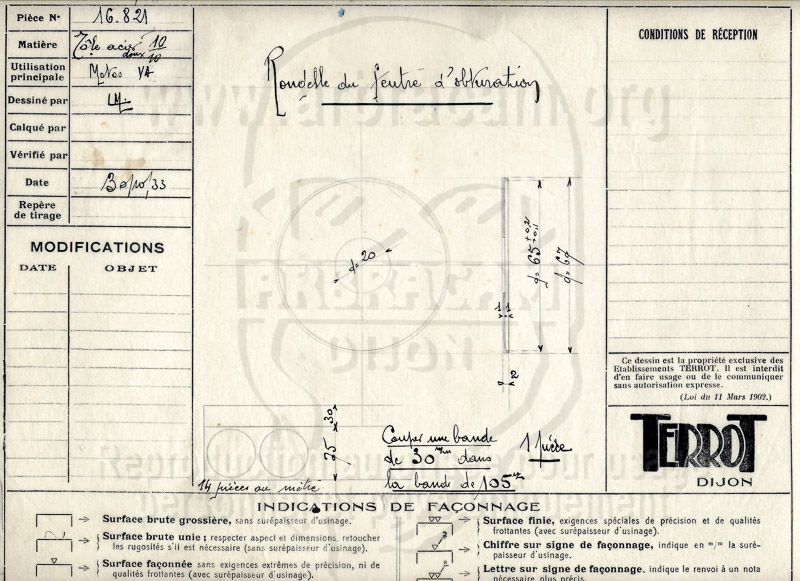 Pièce No 16.821
Matière Tôle acier doux 10/10
Utilisation principale Motos VA
Dessiné par LM
Calqué par
Vérifié par
Date 30/10/33
Repère de tirage
MODIFICATIONS
DATE OBJET
Rondelle du feutre d'obturation
d=20
1 1
2
d=65 +0,2 +0,1
d=67
30
75
14 pièces au mètre
Couper une bande
de 30mm dans
la bande de 105mm
1 pièce
CONDITIONS DE RÉCEPTION
Ce dessin est la propriété exclusive des
Etablissements TERROT. Il est interdit
d'en faire usage ou de le communiquer
sans autorisation expresse.
(Loi du 11 Mars 1902.)
TERROT
DIJON
www.arbracam.org
ARBRACAM
DIJON
INDICATIONS DE FAÇONNAGE
Surface brute grossière, sans surépaisseur d'usinage.
Surface brute unie; respecter aspect et dimensions, retoucher
les rugosités s'il est nécessaire (sans surépaisseur d'usinage).
Surface façonnée sans exigences extrêmes de précision, ni de
qualités frottantes (avec surépaisseur d'usinage).
Surface finie, exigences spéciales de précision et de qualités
frottantes (avec surépaisseur d'usinage).
Chiffre sur signe de façonnage, indique en m/m la suré-
paisseur d'usinage.
Lettre sur signe de façonnage, indique le renvoi à un nota
nécessaire plus précis.